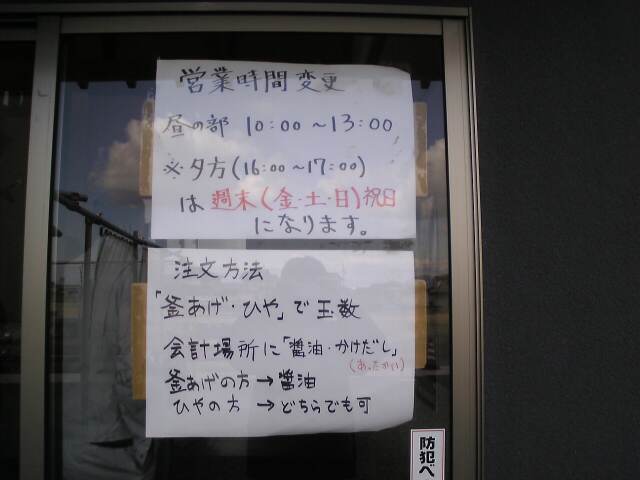 営業時間変更
昼の部 10:00～13:00
※夕方(16:00～17:00)
は週末(金・土・日)祝日
になります。
注文方法
「釜あげ・ひや」で玉数
会計場所に「醤油・かけだし」
(あったかい)
釜あげの方→醤油
ひやの方 →どちらでも可
防犯ベ